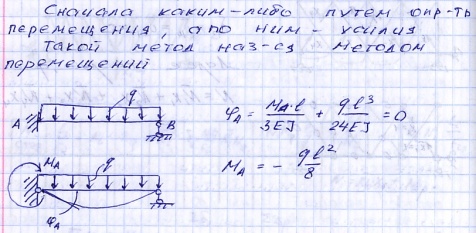 Сначала каким-либо путем опр-ть
перемещения, а по ним - усилия
Такой метод наз-ся методом
перемещений
q
A
B
φA = MA·l/3EJ + ql³/24EJ = 0
MA
q
MA = - ql²/8
φA